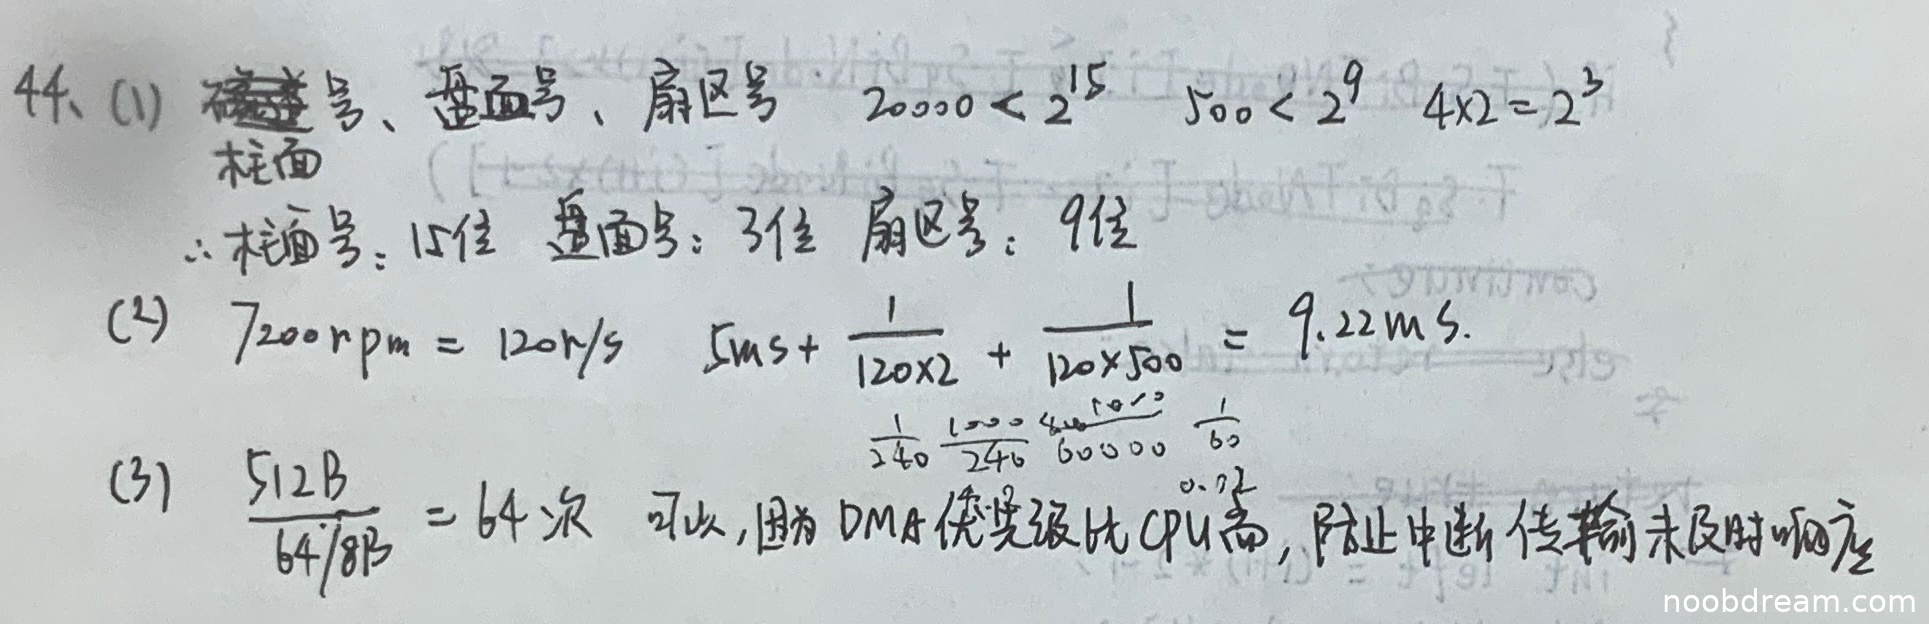 44、(1) 号、盘面号、扇区号 20000 < 2^15 500 < 2^9 4×2 = 2^3
柱面
∴ 柱面号: 15位 盘面号: 3位 扇区号: 9位
(2) 7200rpm = 120r/s 5ms + 1/(120×2) + 1/(120×500) = 9.22ms.
1/240 1000/240 1000/60000 1/60
0.02
(3) 512B/(64/8B) = 64次 可以,因为DMA优先级比CPU高,防止中断传输未及时响应
noobdream.com